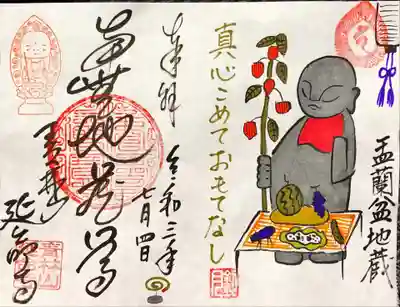 盂蘭盆地蔵
真心こめておもてなし
奉拝
令和三年
七月四日
南無地蔵尊
延命寺